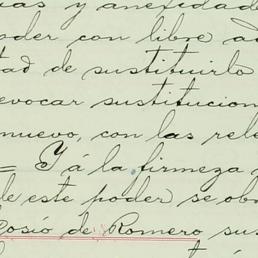 y anexidad
oder con libre ad
tad de sustituirlo
evocar sustitucion
nuevo, con las rele
= Y á la firmeza
de este poder se ob
Cosío de Romero sus